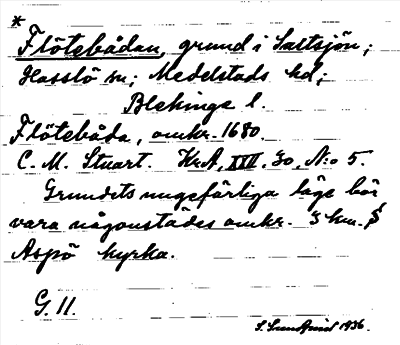 *
Flötebådan, grund i Saltsjön;
Hasslö sn; Medelstads hd;
Blekinge l.
Flötebåda, omkr. 1680.
C. M. Stuart. Kr.A, XXII, 30, N:o 5.
Grundets ungefärliga läge bör
vara någonstädes omkr. 3 km. S
Aspö kyrka.
G. 11.
S. Sundqvist 1936.